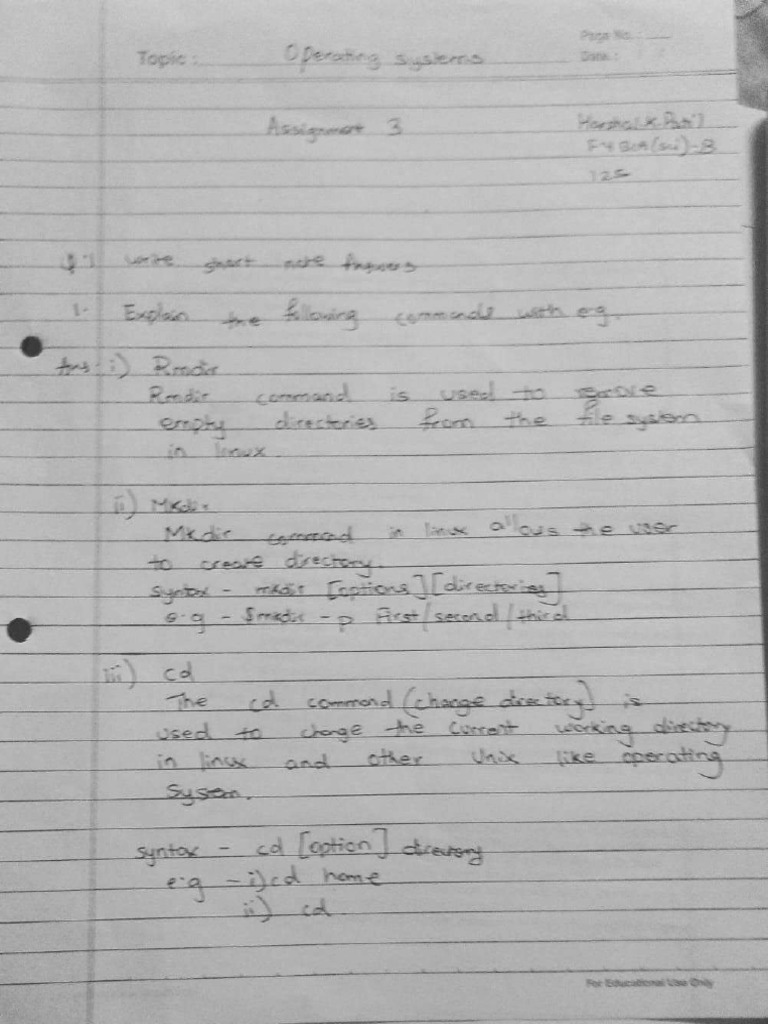 Page No. :
Topic : Operating systems
Date :
Assignment 3
Harshal.K.Patil
FY BCA(sci)-B
125
Q.1 write short note Answers
1. Explain the following commands with e.g.
Ans- i) Rmdir
Rmdir command is used to remove
empty directories from the file system
in linux.
ii) Mkdir
Mkdir command in linux allows the user
to create directory.
syntax - mkdir [options] [directories]
e.g - $mkdir -p First/second/third
iii) cd
The cd command (change directory) is
used to change the current working directory
in linux and other Unix like operating
System.
syntax - cd [option] directory
e.g - i) cd home
ii) cd
For Educational Use Only